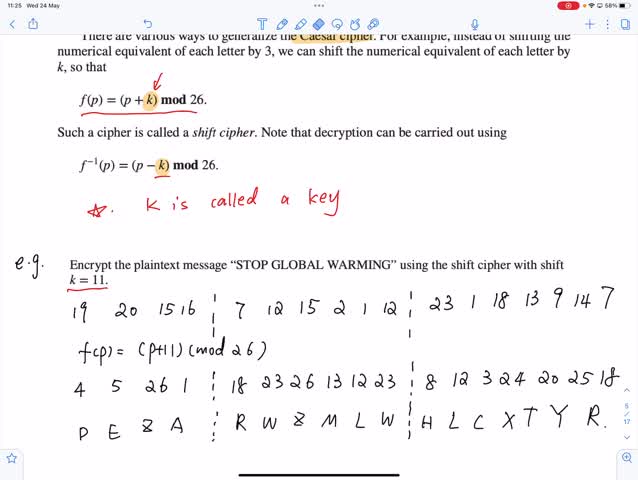 11:25 Wed 24 May
58%
There are various ways to generalize the Caesar cipher. For example, instead of shifting the
numerical equivalent of each letter by 3, we can shift the numerical equivalent of each letter by
k, so that
f(p) = (p + k) mod 26.
Such a cipher is called a shift cipher. Note that decryption can be carried out using
f⁻¹(p) = (p − k) mod 26.
☆. K is called a key
e.g. Encrypt the plaintext message “STOP GLOBAL WARMING” using the shift cipher with shift
k = 11.
19 20 15 16 7 12 15 2 1 12 23 1 18 13 9 14 7
f(p) = (p+11) (mod 26)
4 5 26 1 18 23 26 13 12 23 8 12 3 24 20 25 18
D E Z A R W Z M L W H L C X T Y R.
5
17